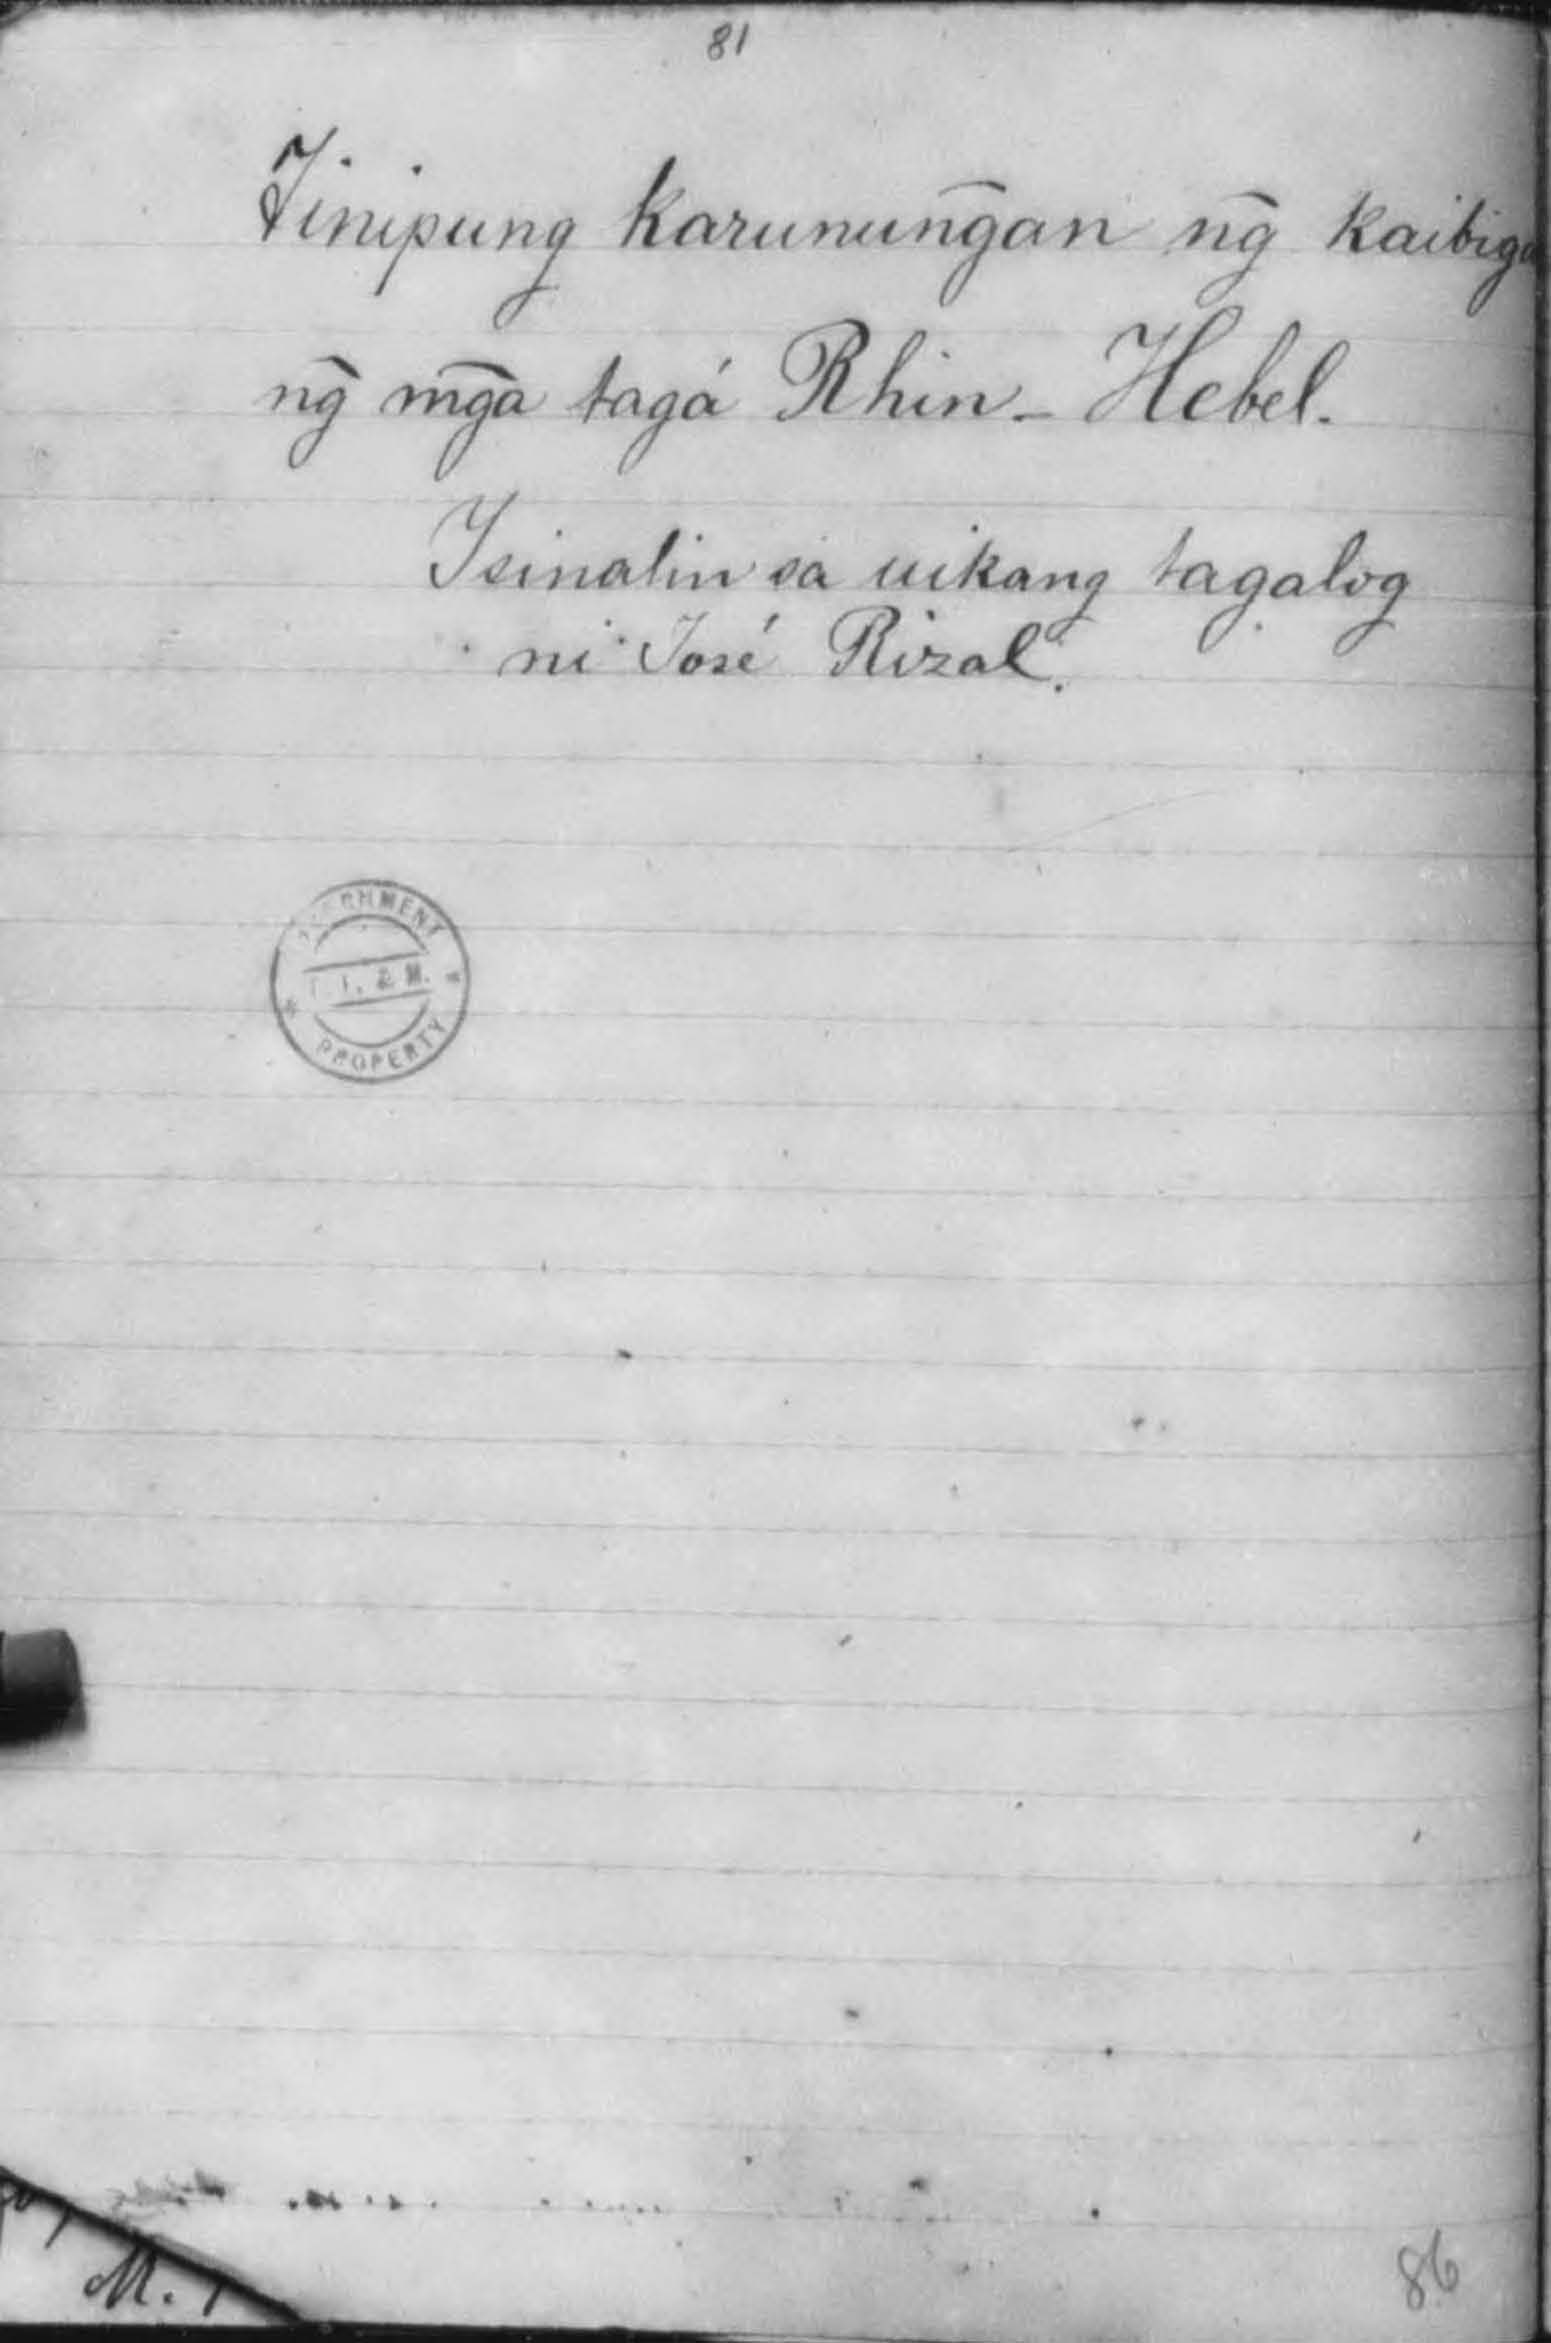 81
Tinipung karunun͠gan n͠g kaibiga
n͠g m͠ga tagá Rhin - Hebel.
Isinalin sa uikang tagalog
ni José Rizal.
PROPERTY
M.
86